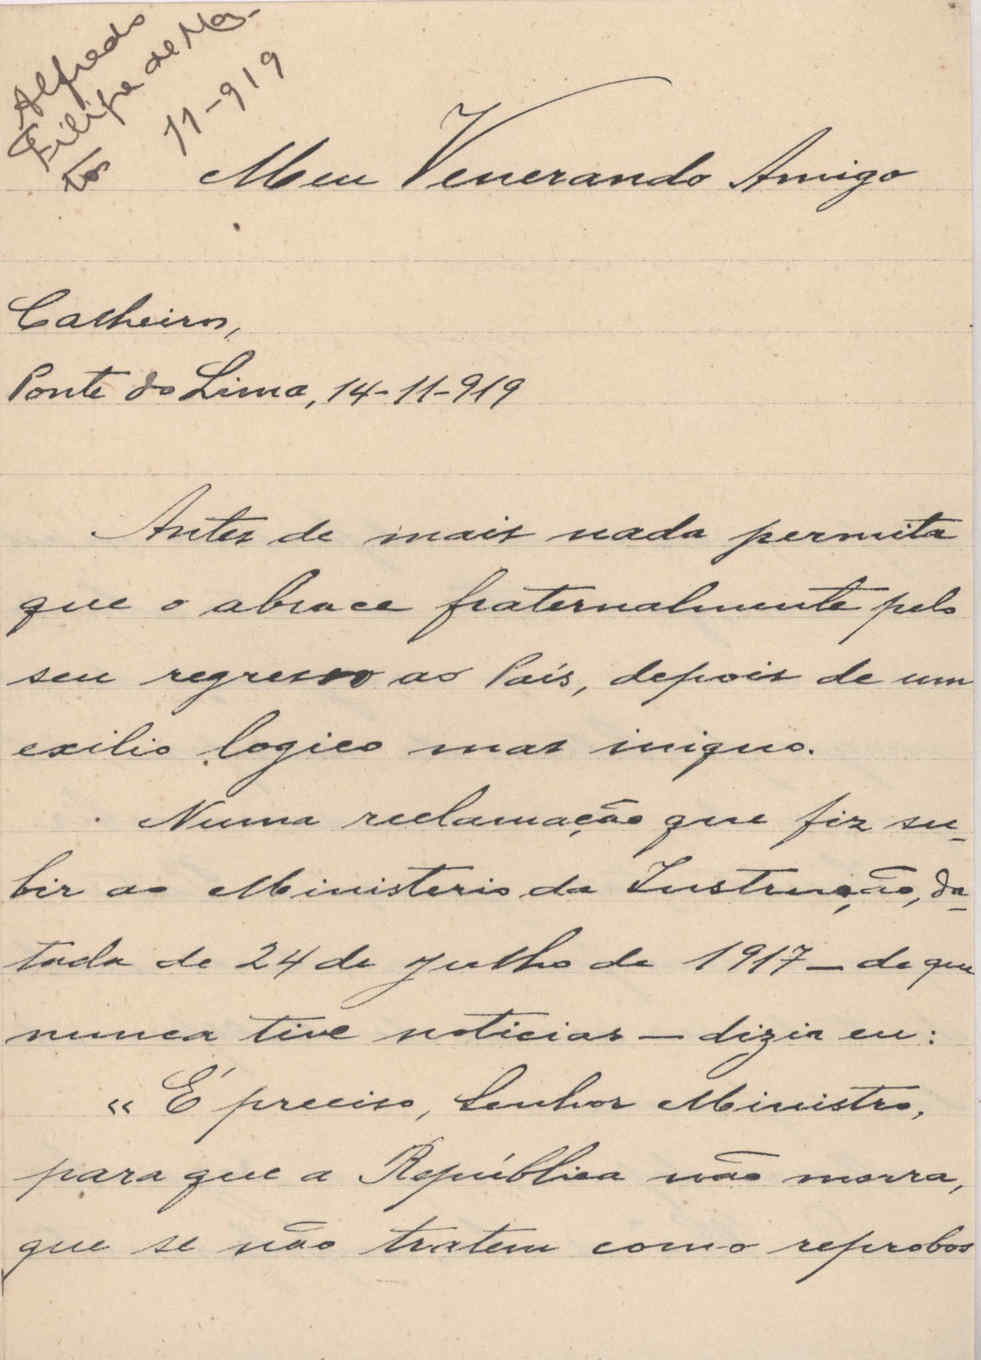 Alfredo
Filipe de Ma-
tos
11-919
Meu Venerando Amigo
Calheiros,
Ponte do Lima, 14-11-919
Antes de mais nada permita
que o abrace fraternalmente pelo
seu regresso ao País, depois de um
exilio logico mas iniquo.
Numa reclamação que fiz su-
bir ao Ministerio da Instrução, da-
tada de 24 de julho de 1917 — de que
nunca tive noticias — dizia eu:
« É preciso, Senhor Ministro,
para que a República não morra,
que se não tratem como reprobos